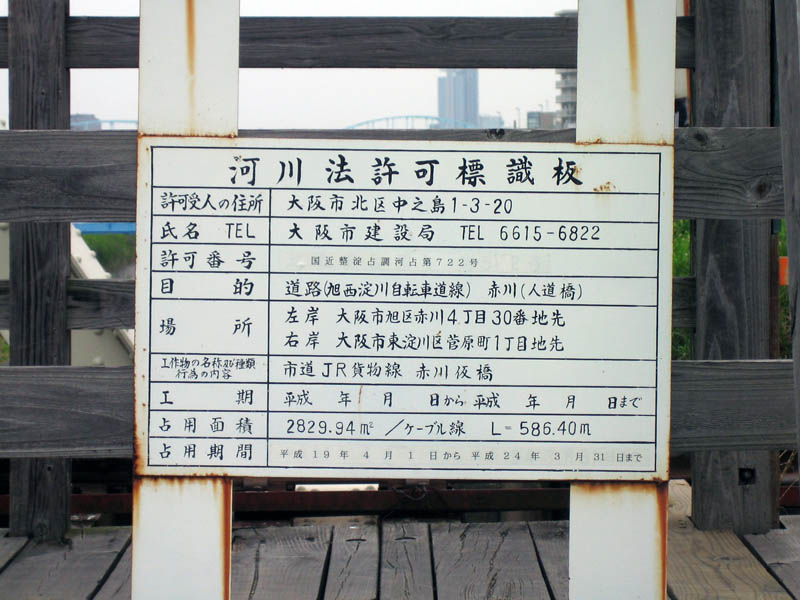 河川法許可標識板
許可受人の住所 大阪市北区中之島1-3-20
氏名 TEL 大阪市建設局 TEL 6615-6822
許可番号 国近整淀占調河占第722号
目的 道路(旭西淀川自転車道線) 赤川(人道橋)
場所 左岸 大阪市旭区赤川4丁目30番地先
右岸 大阪市東淀川区菅原町1丁目地先
工作物の名称及び種類
行為の内容 市道JR貨物線 赤川仮橋
工期 平成 年 月 日から 平成 年 月 日まで
占用面積 2829.94㎡ /ケーブル線 L=586.40m
占用期間 平成19年4月1日から平成24年3月31日まで